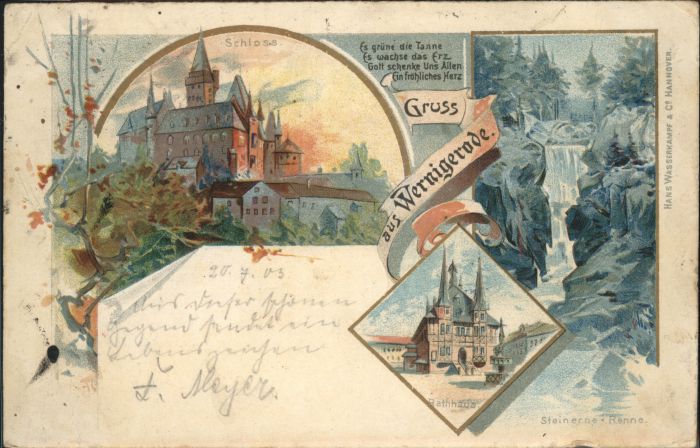 Schloss.
Es grüne die Tanne
Es wachse das Erz
Gott schenke Uns Allen
Ein fröhliches Herz
Gruss
aus Wernigerode.
HANS WASSERKAMPF & Co. HANNOVER.
20.7.03
Aus dieser schönen
Gegend sendet ein
Lebenszeichen
Meyer.
Rathhaus
Steinerne Renne.